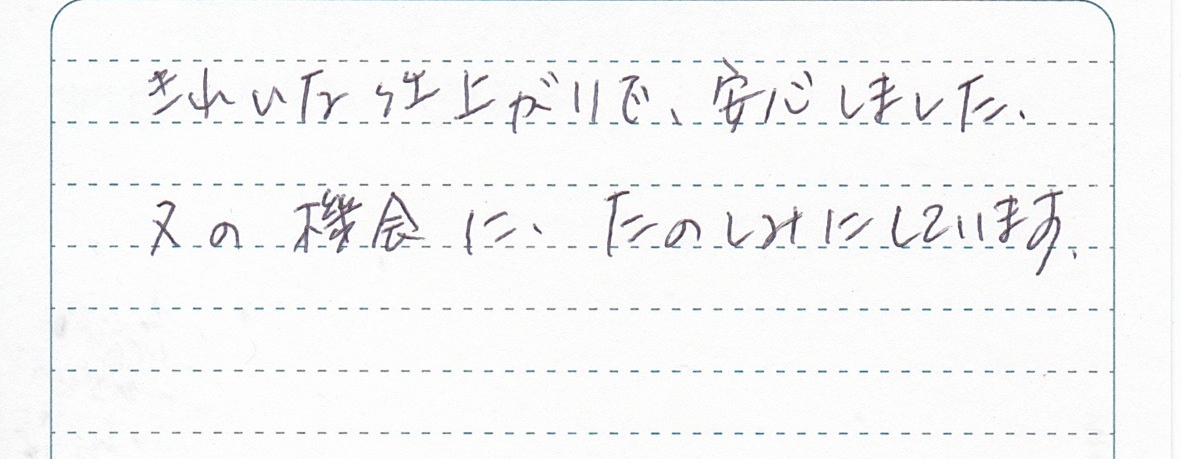 きれいな仕上がりで、安心しました、
又の機会に、たのしみにしています、